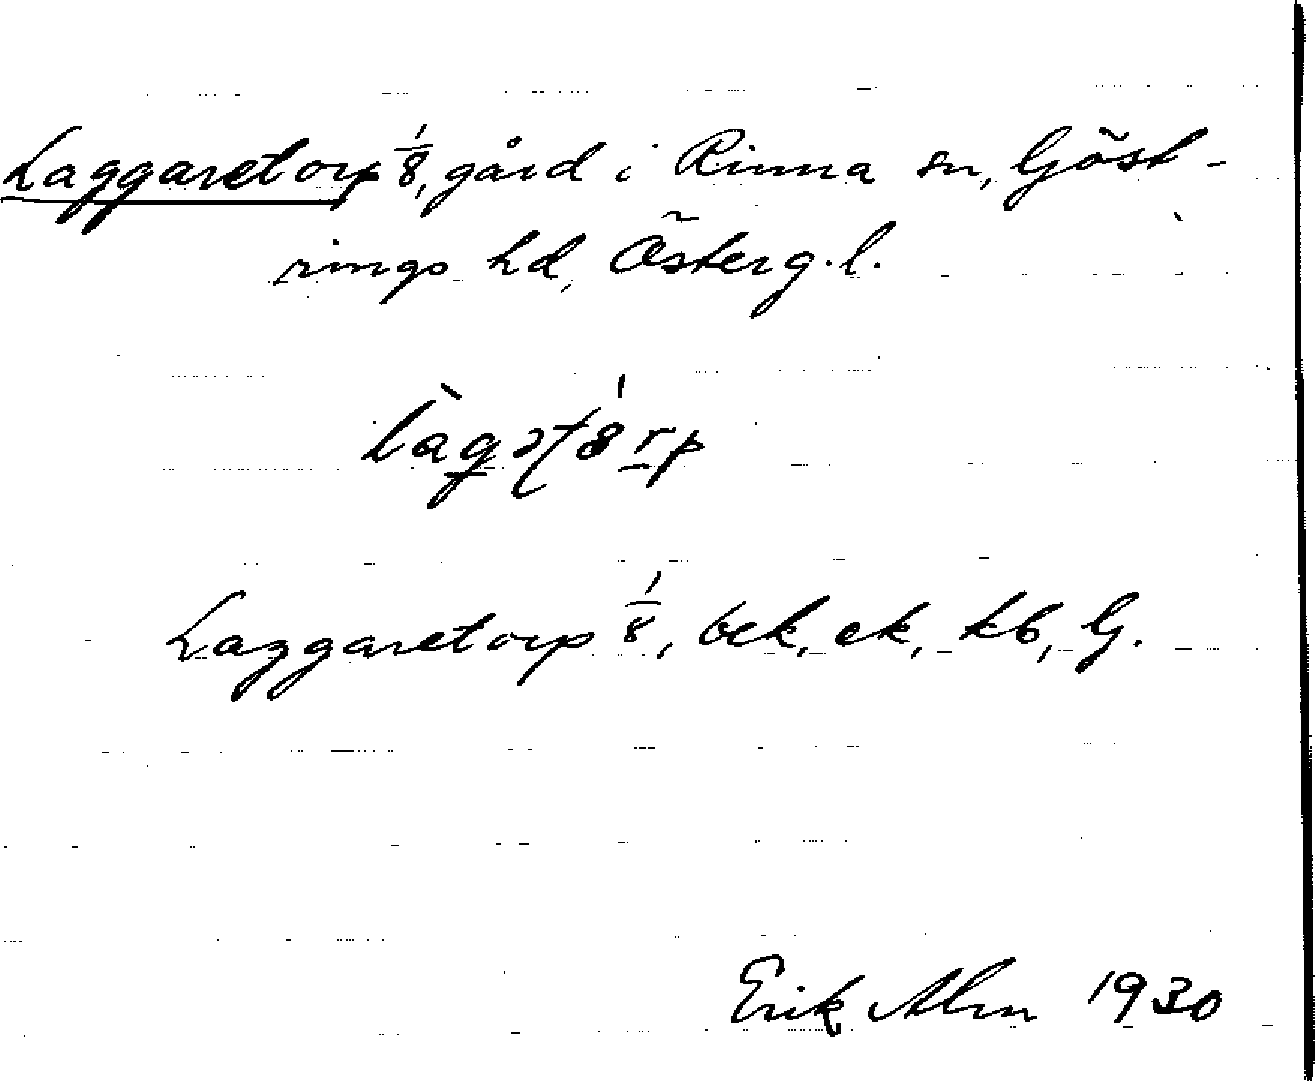 Laggaretorp 1/8, gård i Rinna sn, Göst-
rings hd, Österg. l.
Laggaretorp 1/8, bek, ek, kb, G.
Erik Alm 1930